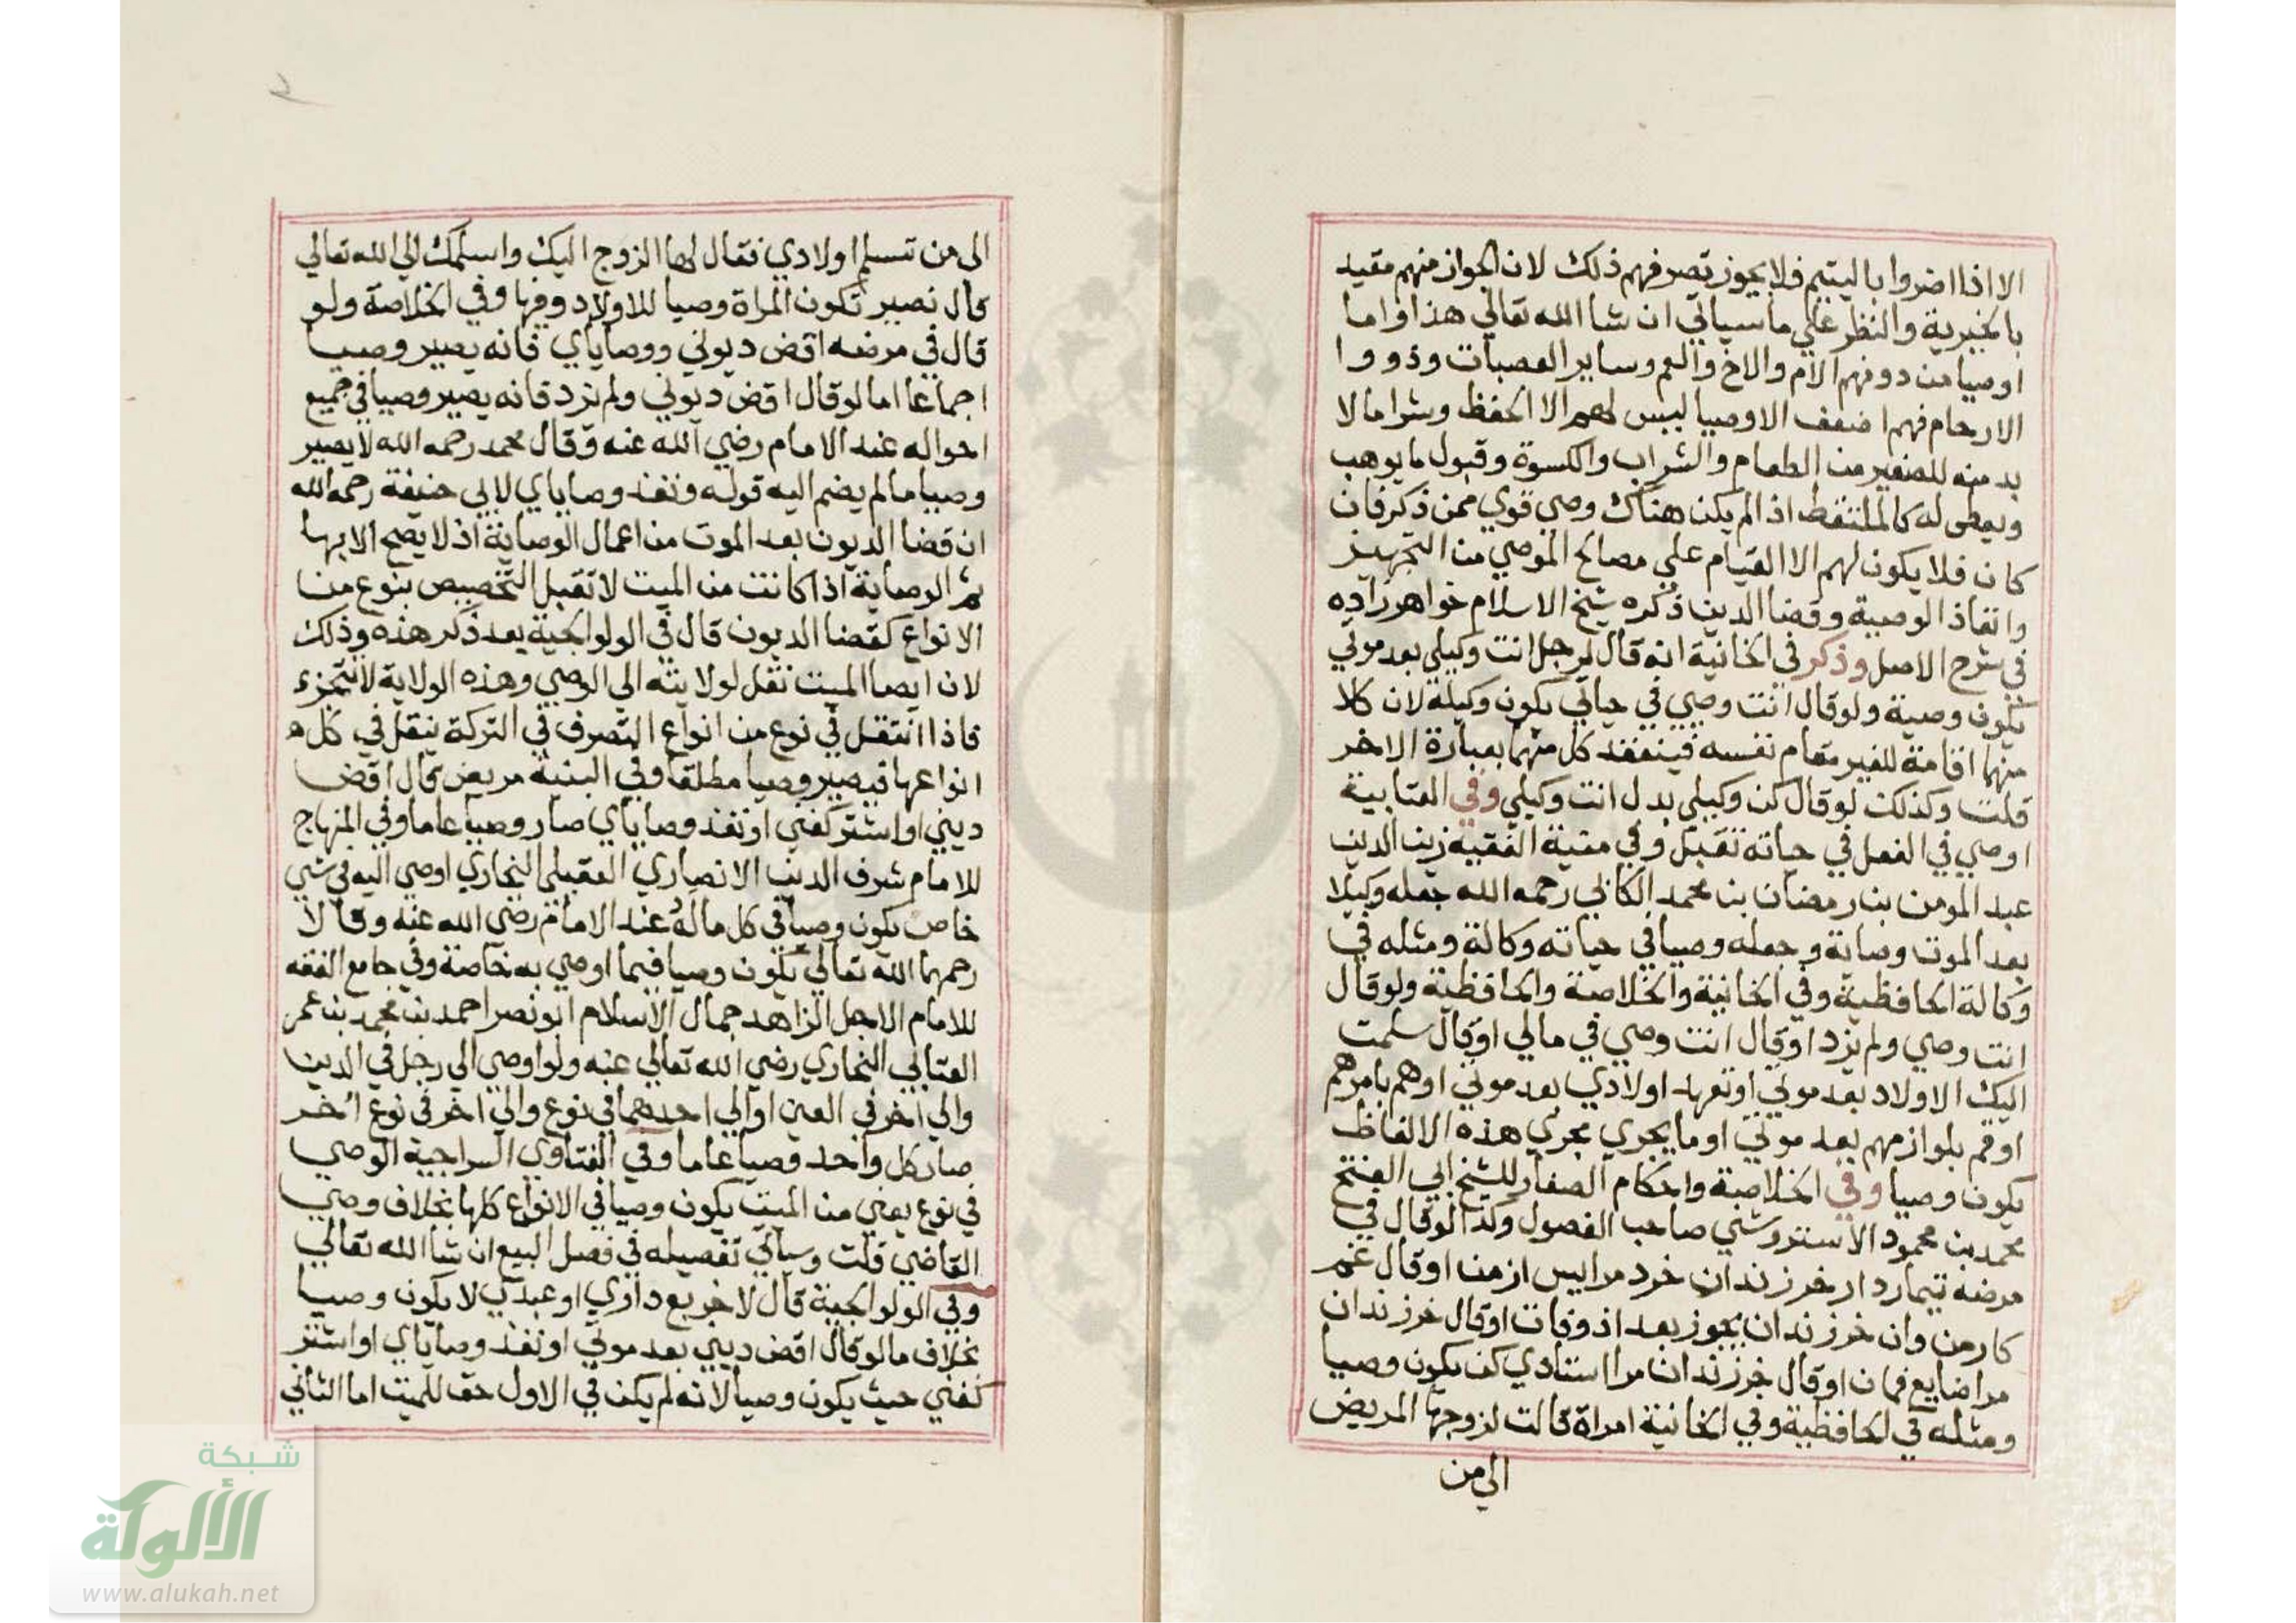 الا اذا اضروا باليتيم فلا يجوز تصرفهم ذلك لان الجواز منهم مقيد
بالخيرية والنظر علي ما سياتي ان شا الله تعالي هذا واما
اوصيا من دونهم الام والاخ والعم وساير العصبات وذووا
الارحام فهم اضعف الاوصيا ليس لهم الا الحفظ وشرا ما لا
بد منه للصغير من الطعام والشراب والكسوة وقبول ما يوهب
ويعطي له كالملتقط اذ الم يكن هناك وصي قوي ممن ذكر فان
كان فلا يكون لهم الا القيام علي مصالح الموصي من التجهيز
وانفاذ الوصية وقضا الدين ذكره شيخ الاسلام خواهرزاده
في شرح الاصل وذكر في الخانية انه قال لرجل انت وكيلي بعد موتي
يكون وصية ولو قال انت وصيي في حياتي يكون وكيلا لان كلا
منهما اقامة للغير مقام نفسه فينعقد كل منهما بعبارة الاخر
قلت وكذلك لو قال كن وكيلي بدل انت وكيلي وفي العتابية
اوصي في الفعل في حياته تقبل وفي منية الفقيه زين الدين
عبد المومن بن رمضان بن محمد الكاني رحمه الله جعله وكيلا
بعد الموت وصاية وجعله وصيا في حياته وكالة ومثله في
وكالة الحافظية وفي الخانية والخلاصة والحافظية ولو قال
انت وصيي ولم يزد او قال انت وصيي في مالي او قال سلمت
اليك الاولاد بعد موتي او تعهد اولادي بعد موتي او هم بامرهم
او قم بلوازمهم بعد موتي او ما يجري مجري هذه الالفاظ
يكون وصيا وفي الخلاصة واحكام الصغار للشيخ ابي الفتح
محمد بن محمود الاستروشني صاحب الفصول وكذا لو قال في
مرضه تيمار دار فرزندان خرد مرا پس از من او قال غم
كار من وان فرزندان بجوز بعد از وفات او قال فرزندان
مرا ضايع ممان او قال فرزندان مرا استادي كن يكون وصيا
ومثله في الحافظية وفي الخانية امراة قالت لزوجها المريض
الي من
الي من تسلم اولادي فقال لها الزوج اليك واسلمك الي الله تعالي
قال نصير تكون المراة وصيا للاولاد وفيها وفي الخلاصة ولو
قال في مرضه اقض ديوني ووصاياي فانه يصير وصيا
اجماعا اما لو قال اقض ديوني ولم يزد فانه يصير وصيا في جميع
احواله عند الامام رضي الله عنه وقال محمد رحمه الله لا يصير
وصيا ما لم يضم اليه قوله ونفذ وصاياي لابي حنيفة رحمه الله
ان قضا الديون بعد الموت من اعمال الوصاية اذ لا يصح الا بها
ثم الوصاية اذا كانت من الميت لا تقبل التخصيص بنوع من
الانواع كقضا الديون قال في الولوالجية بعد ذكر هذه وذلك
لان ايصا الميت نقل لولايته الي الوصي وهذه الولاية لا تتجزء
فاذا انتقل في نوع من انواع التصرف في التركة ينقل في كل
انواعها فيصير وصيا مطلقا وفي البنية مريض قال اقض
ديني او اشتر كفني او نفذ وصاياي صار وصيا عاما وفي المنهاج
للامام شرف الدين الانصاري العقيلي البخاري اوصي اليه في شي
خاص يكون وصيا في كل ماله عند الامام رضي الله عنه وقالا
رحمهما الله تعالي يكون وصيا فيما اوصي به خاصة وفي جامع الفقه
للامام الاجل الزاهد جمال الاسلام ابو نصر احمد بن محمد بن عمر
العتابي البخاري رضي الله تعالي عنه ولو اوصي الي رجل في الدين
والي اخر في العين او الي احدهما في نوع والي اخر في نوع اخر
صار كل واحد وصيا عاما وفي الفتاوي السراجية الوصي
في نوع يعني من الميت يكون وصيا في الانواع كلها بخلاف وصي
القاضي قلت وسياتي تفصيله في فصل البيع ان شا الله تعالي
وفي الولوالجية قال لاخر بع داري او عبدي لا يكون وصيا
بخلاف ما لو قال اقض ديني بعد موتي او نفذ وصاياي او اشتر
كفني حيث يكون وصيا لانه لم يكن في الاول حق للميت اما الثاني
شبكة
الألوكة
www.alukah.net